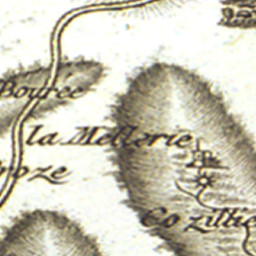 Bourée
la Mellerie
roze
Co zillie